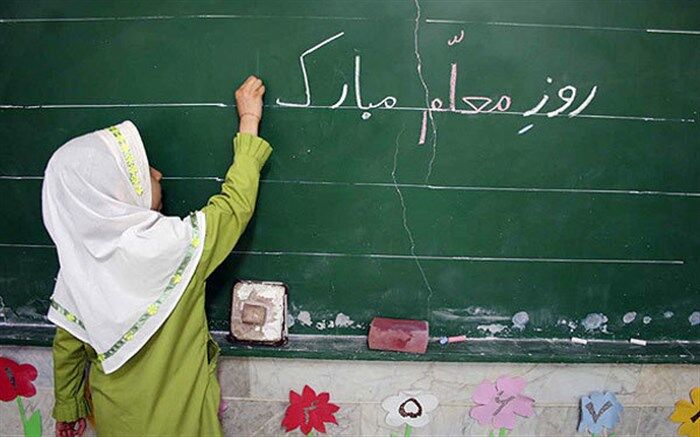 روزِ معلّم مبارک
۴ ۵ ۶ ۷